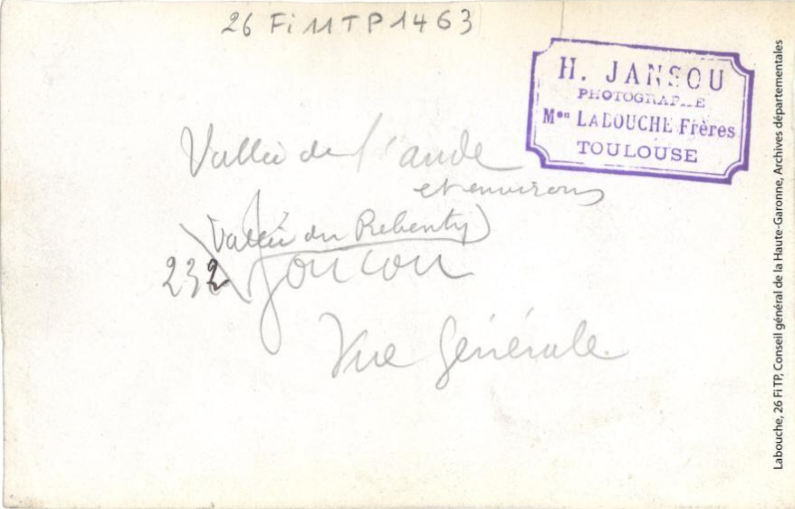 26 Fi 11 TP 1463
H. JANSOU
PHOTOGRAPHE
Mon LABOUCHE Frères
TOULOUSE
Vallée de l'aude
et environs
(Vallée du Rebenty)
232 Joucou
Vue Générale
Labouche, 26 Fi TP, Conseil général de la Haute-Garonne, Archives départementales